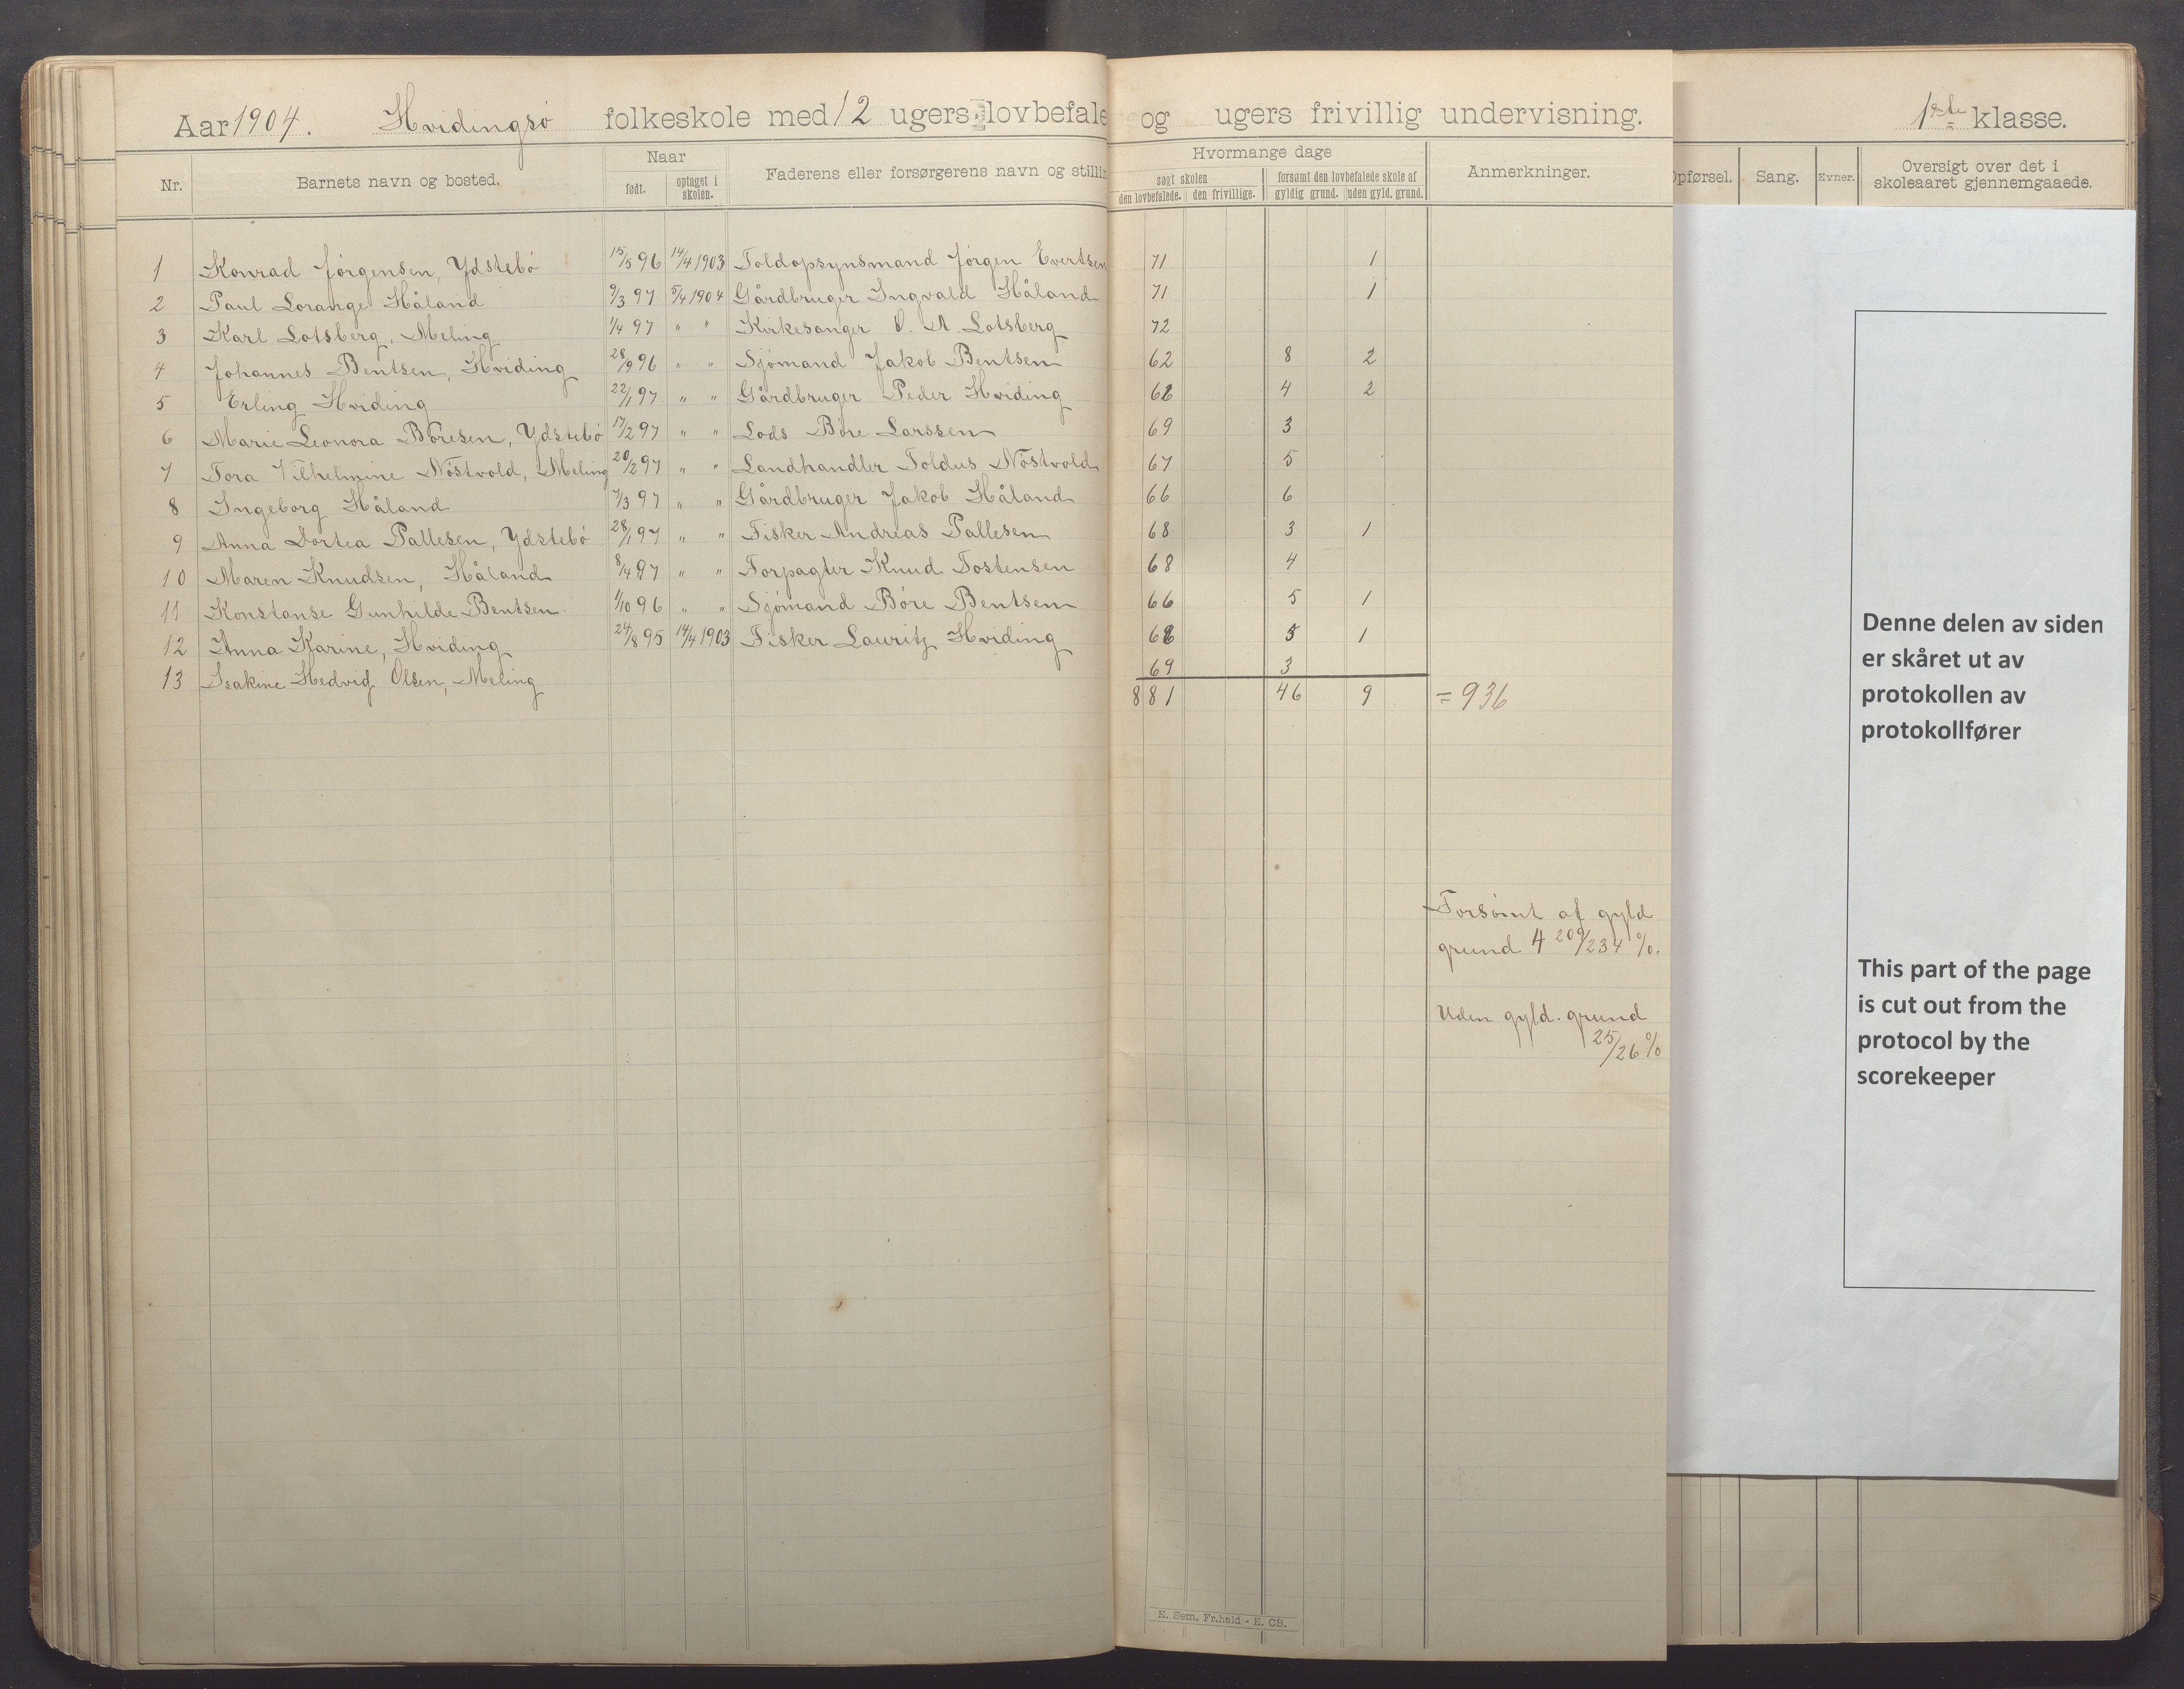 Aar 1904. Hvidingsø folkeskole med 12 ugers lovbefale og ugers frivillig undervisning. 1ste klasse.
Nr. Barnets navn og bosted. Naar Faderens eller forsørgerens navn og stillin Hvormange dage Anmerkninger. Opførsel. Sang. Evner. Oversigt over det i
skoleaaret gjennemgaaede.
født. optaget i skolen. søgt skolen forsømt den lovbefalede skole af
den lovbefalede. den frivillige. gyldig grund. uden gyld. grund.
1 Konrad Jørgensen, Ydstebø 15/5 96 14/4 1903 Toldopsynsmand Jørgen Evertsen 71 1
2 Paul Lorange Håland 9/3 97 5/4 1904 Gårdbruger Ingvald Håland 71 1
3 Karl Lotsberg, Meling 1/4 97 " " Kirkesanger O. A. Lotsberg 72
4 Johannes Bentsen, Hviding 28/9 96 " " Sjømand Jakob Bentsen 62 8 2
5 Erling Hviding 22/1 97 " " Gårdbruger Peder Hviding 4 2
6 Marie Leonora Børesen, Ydstebø 17/2 97 " " Lods Børe Larssen 69 3
7 Tora Vilhelmine Nøstvold, Meling 20/2 97 " " Landhandler Toldus Nøstvold 67 5
8 Ingeborg Håland 7/3 97 " " Gårdbruger Jakob Håland 66 6
9 Anna Dortea Pallesen, Ydstebø 28/1 97 " " Fisker Andreas Pallesen 68 3 1
10 Maren Knudsen, Håland 8/4 97 " " Forpagter Knud Tostensen 68 4
11 Konstanse Gunhilde Bentsen 1/10 96 " " Sjømand Børe Bentsen 66 5 1
12 Anna Karine, Hviding 24/8 95 14/4 1903 Fisker Lauritz Hviding 5 1
13 Isakine Hedvig Olsen, Meling 69 3
881 46 9 = 936
Forsømt af gyld
grund 4 209/234 %.
Uden gyld. grund
25/26 %
Denne delen av siden
er skåret ut av
protokollen av
protokollfører
This part of the page
is cut out from the
protocol by the
scorekeeper
E. Sem, Fr.hald - E. CB.